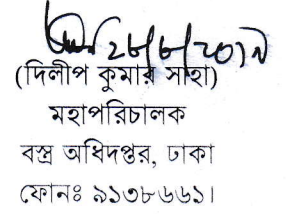 ২৮/৮/২০১৯
(দিলীপ কুমার সাহা)
মহাপরিচালক
বস্ত্র অধিদপ্তর, ঢাকা
ফোনঃ ৯১৩৮৬৬১।